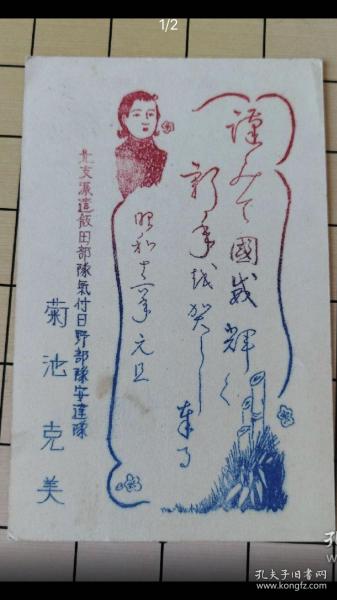 1/2
謹みて國威輝く
新年を賀し
奉る
昭和十六年元旦
北支派遣飯田部隊氣付日野部隊安達隊
菊池克美
孔夫子旧书网